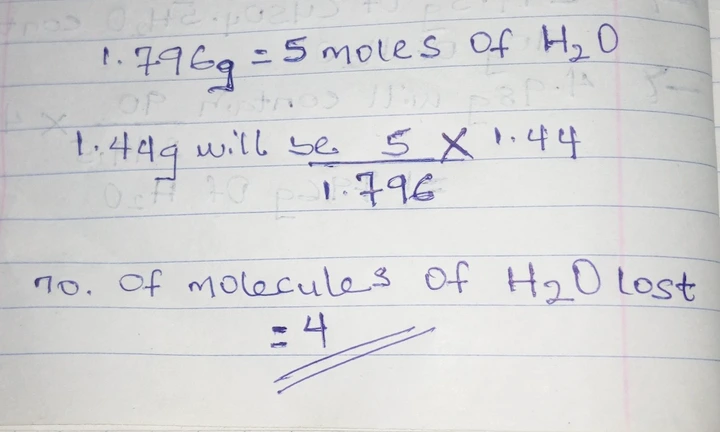 1.796g = 5 moles of H₂O
1.44g will be 5 × 1.44
1.796
no. Of molecules Of H₂O lost
= 4